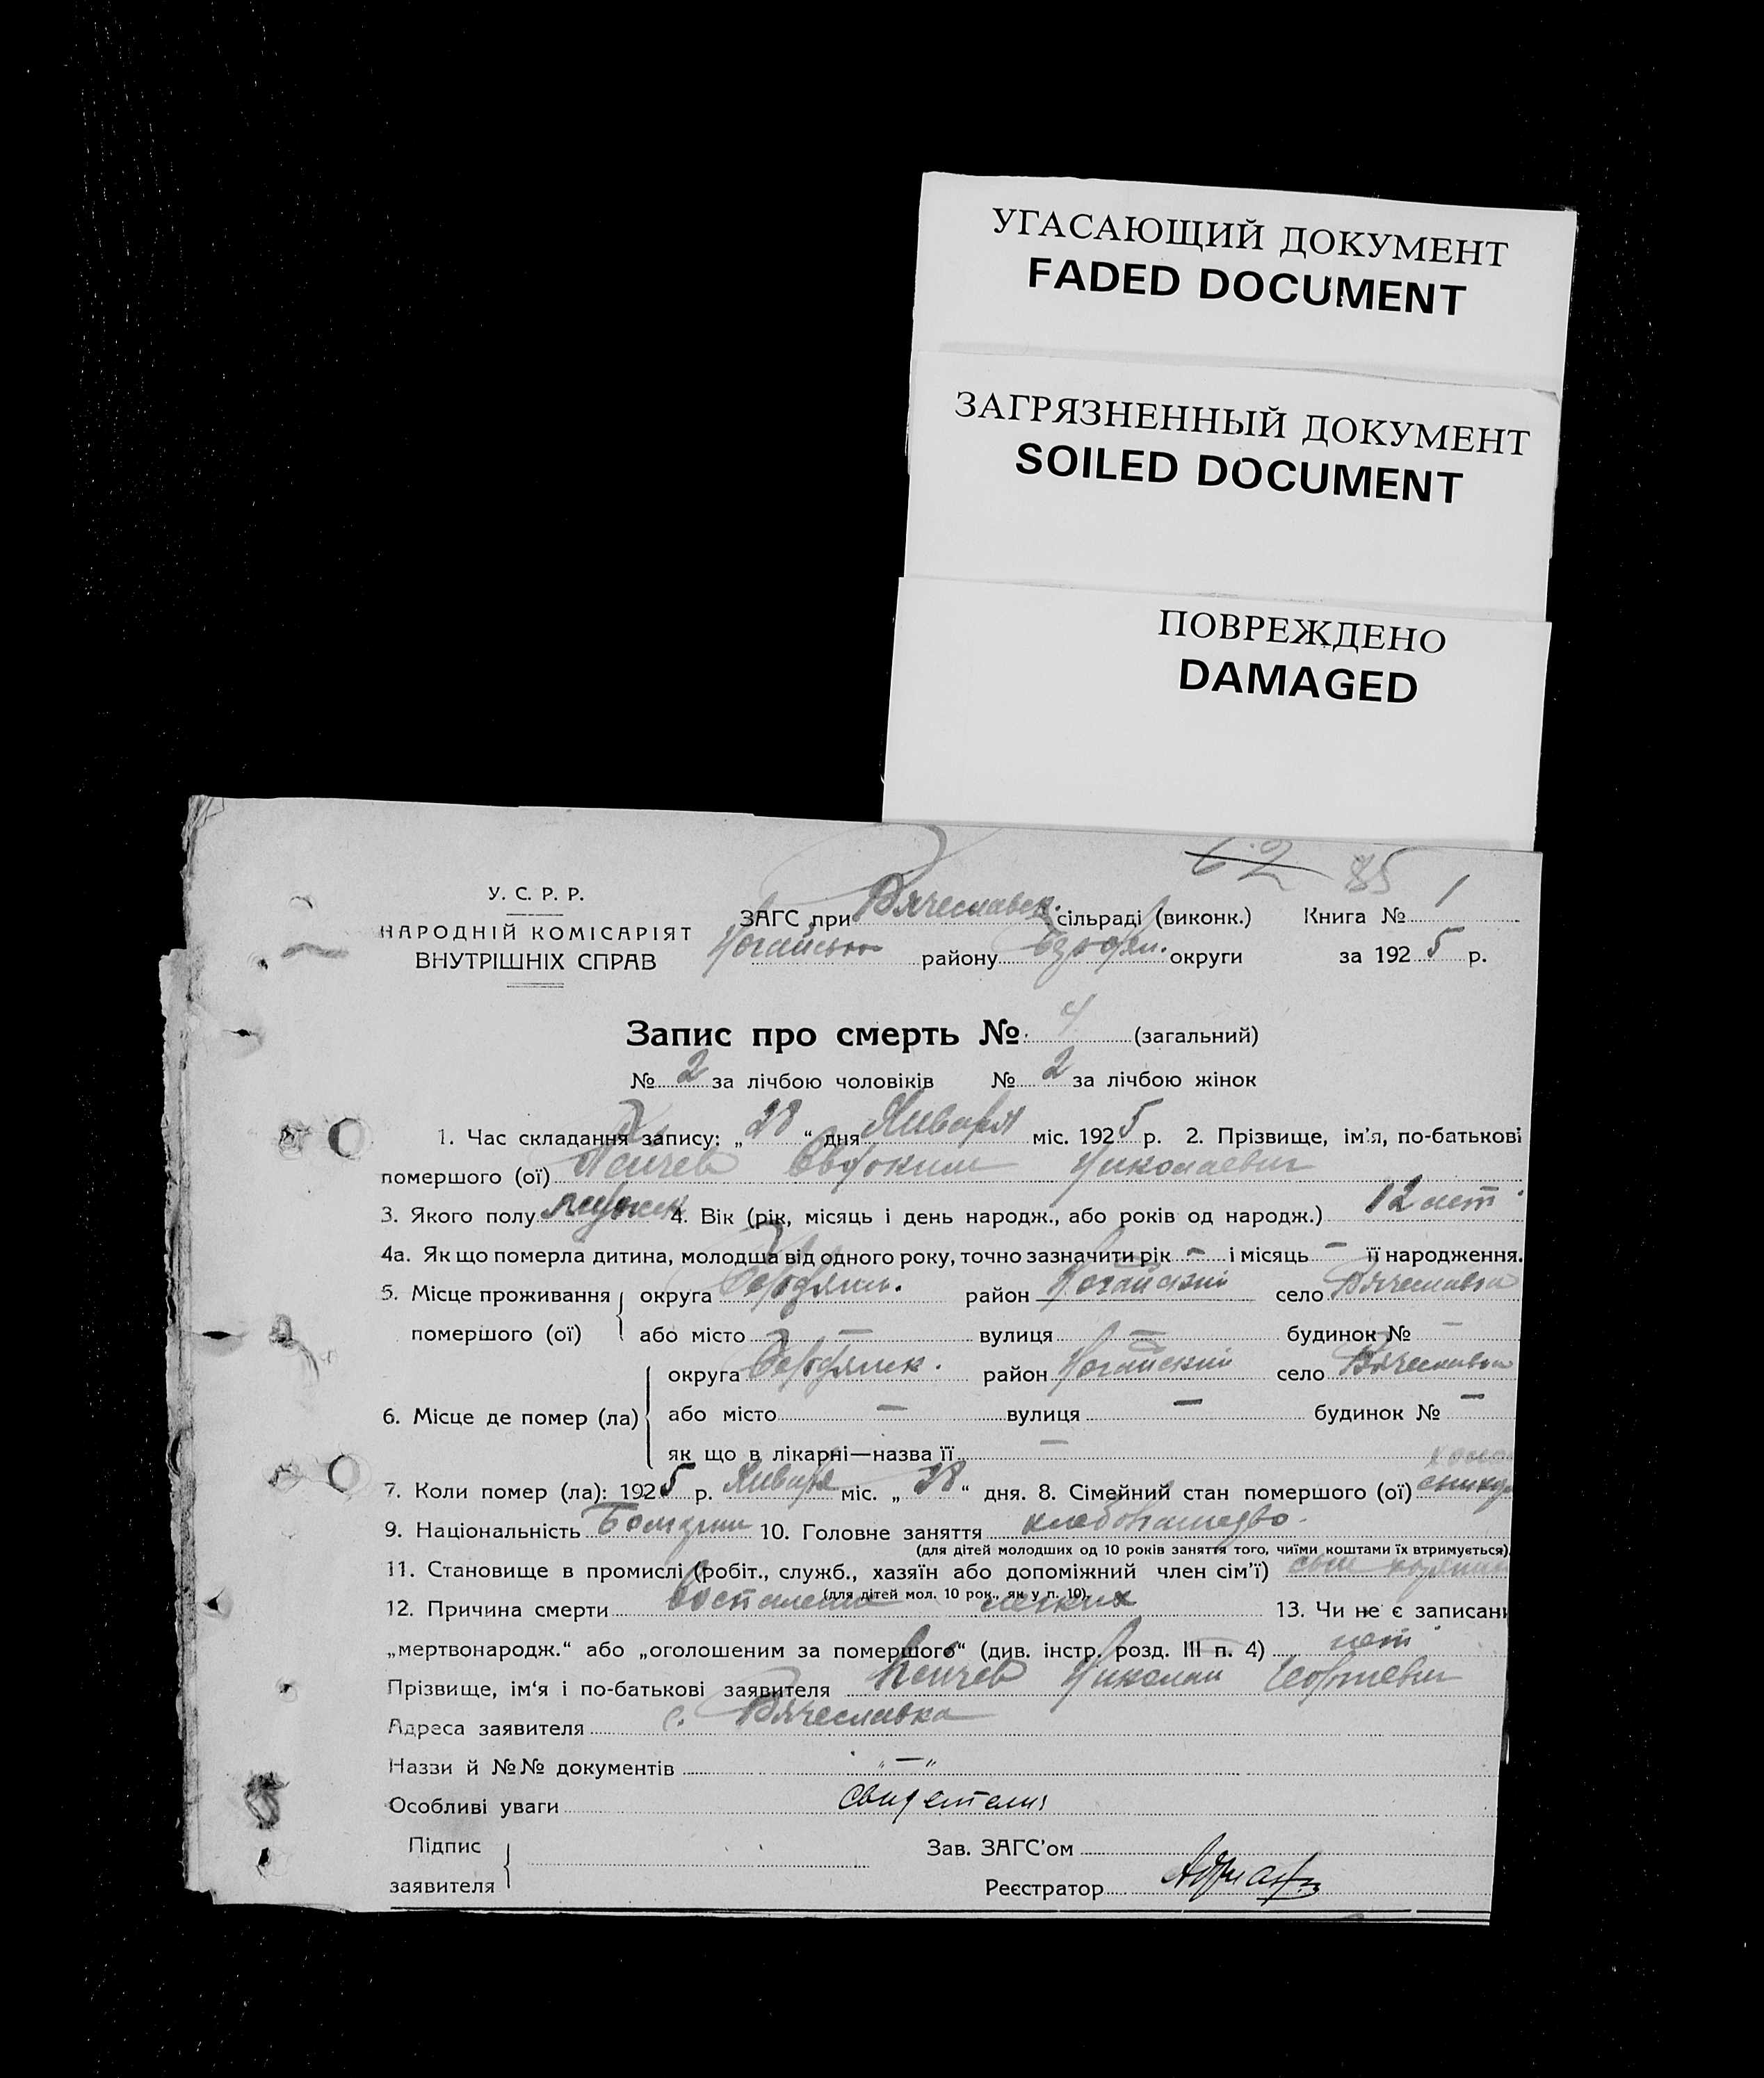 УГАСАЮЩИЙ ДОКУМЕНТ
FADED DOCUMENT
ЗАГРЯЗНЕННЫЙ ДОКУМЕНТ
SOILED DOCUMENT
ПОВРЕЖДЕНО
DAMAGED
62 85
У. С. Р. Р.
НАРОДНІЙ КОМІСАРІЯТ
ВНУТРІШНІХ СПРАВ
ЗАГС при Вячеславск. сільраді (виконк.) Книга № 1
району округи за 1925 р.
Запис про смерть № 4 (загальний)
№ 2 за лічбою чоловіків № 2 за лічбою жінок
1. Час складання запису: „28“ дня Января міс. 1925 р. 2. Прізвище, ім'я, по-батькові
помершого (ої) Пейчев Евдоким Николаевич
3. Якого полу мужск 4. Вік (рік, місяць і день народж., або років од народж.) 12 лет
4а. Як що померла дитина, молодша від одного року, точно зазначити рік – і місяць – її народження.
5. Місце проживання округа Бердянск. район Ногайский село Вячеславка
помершого (ої) або місто — вулиця — будинок № —
округа Бердянск. район Ногайский село Вячеславка
6. Місце де помер (ла) або місто — вулиця — будинок № —
як що в лікарні—назва її —
7. Коли помер (ла): 1925 р. Января міс. „28“ дня. 8. Сімейний стан помершого (ої)
9. Національність Болгрин 10. Головне заняття хлебопашедво.
(для дітей молодших од 10 років заняття того, чиїми коштами їх втримується).
11. Становище в промислі (робіт., служб., хазяїн або допоміжний член сім'ї) сын
(для дітей мол. 10 рок., як у п. 10).
12. Причина смерти воспаление легких 13. Чи не є записани
„мертвонародж.“ або „оголошеним за помершого“ (див. інстр. розд. III п. 4) нет
Прізвище, ім'я і по-батькові заявителя Пейчев Николай Георгиевич
Адреса заявителя с. Вячеславка
Наззи й №№ документів „—“
Особливі уваги
Підпис
заявителя
Зав. ЗАГС'ом
Реєстратор